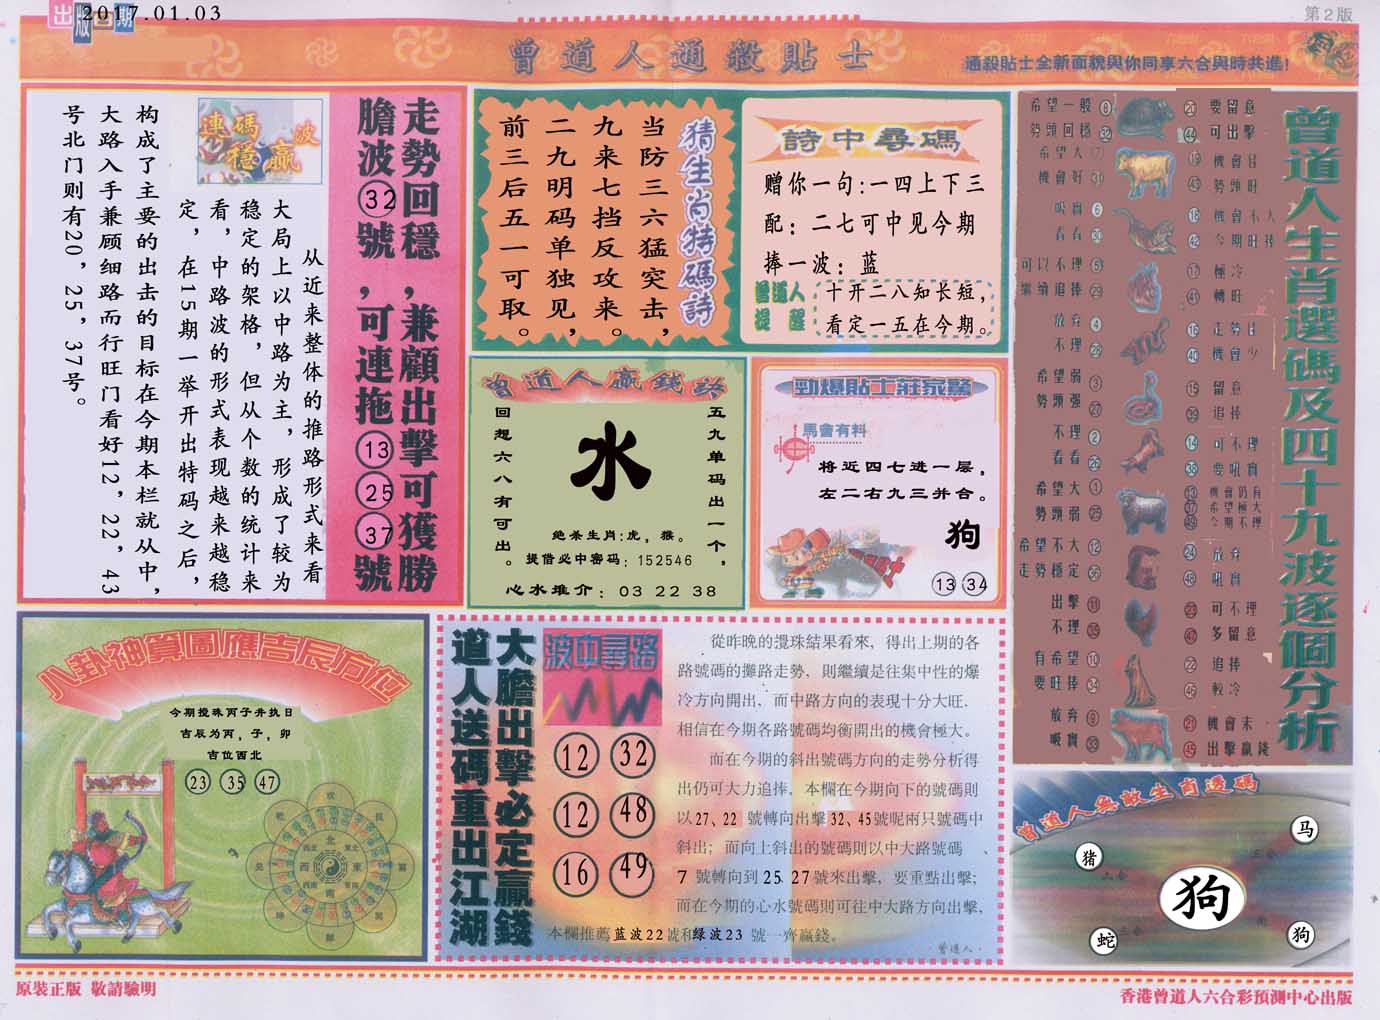 出版日期
2017.01.03
第2版
曾道人通殺貼士
通殺貼士全新面貌與你同享六合與時共進！
走勢回穩,兼顧出擊可獲勝
膽波32號,可連拖132537號
連碼波
穩贏
从近来整体的推路形式来看
大局上以中路为主，形成了较为
稳定的架格，但从个数的统计来
看，中路波的形式表现越来越稳
定，在15期一举开出特码之后，
构成了主要的出击的目标在今期本栏就从中，
大路入手兼顾细路而行旺门看好12，22，43
号北门则有20，25，37号。
猜生肖特碼詩
当防三六猛突击，
九来七挡反攻来。
二九明码单独见，
前三后五一可取。
詩中尋碼
赠你一句:一四上下三
配：二七可中见今期
捧一波：蓝
曾道人
提醒
十开二八知长短，
看定一五在今期。
曾道人贏錢詩
五九单码出一个，
回想六八有可出。
水
绝杀生肖:虎，猴。
提借必中密码：152546
心水推介：03 22 38
勁爆貼士莊家驚
馬會有料
将近四七进一层，
左二右九三并合。
狗
13 34
曾道人生肖選碼及四十九波逐個分析
希望一般 8
勢頭回穩 32
希望大 7
機會好 31
吸實 6
看看 30
可以不理 5
繼續追捧 29
放弃 4
不理 28
希望弱 3
勢頭强 27
不理 2
看看 26
希望大 1
勢頭弱 25
希望不大 12
走勢穩定 36
出擊 11
不理 35
有希望 10
要旺捧 34
放弃 9
吸實 33
20 要留意
44 可出擊
19 機會佳
43 勢頭旺
18 機會不大
42 今期旺捧
17 極冷
41 轉旺
16 走勢佳
40 機會少
15 留意
39 追捧
14 可不理
38 要吸實
13 機會仍有
37 希望極大
49 今期不理
24 放弃
48 吼實
23 可不理
47 多留意
22 追捧
46 較冷
21 機會末
45 出擊贏錢
八卦神算圖應吉辰方位
今期搅珠丙子井执日
吉辰为丙，子，卯
吉位西北
23 35 47
北
西 東
南
大膽出擊必定贏錢
道人送碼重出江湖
波中尋路
12 32
12 48
16 49
從昨晚的攪珠結果看來，得出上期的各
路號碼的攤路走勢，則繼續是往集中性的爆
冷方向開出，而中路方向的表現十分大旺．
相信在今期各路號碼均衡開出的機會極大。
而在今期的斜出號碼方向的走勢分析得
出仍可大力追捧，本欄在今期向下的號碼則
以27、22 號轉向出擊32、45號呢兩只號碼中
斜出；而向上斜出的號碼則以中大路號碼、
7 號轉向到25 27號來出擊，要重點出擊；
而在今期的心水號碼則可往中大路方向出擊，
本欄推薦蓝波22號和绿波23 號一齊贏錢。
曾道人·
曾道人無敵生肖透碼
马
猪
六合
三合
狗
蛇
狗
原裝正版 敬請驗明
香港曾道人六合彩預測中心出版